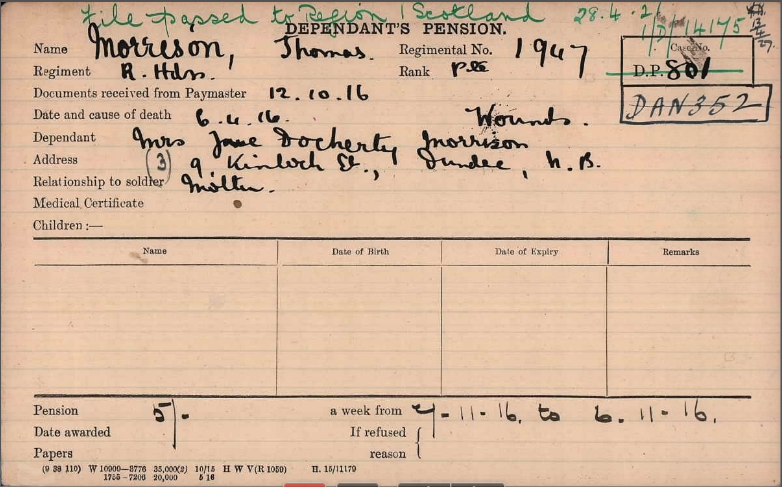 File passed to Region 1 Scotland 28.4.2
DEPENDANT'S PENSION.
1/D/14175
Name Morrison, Thomas. Regimental No. 1947
Case No.
Regiment R. Hdrs. Rank Pte
D.P. 801
Documents received from Paymaster 12.10.16
DAN352
Date and cause of death 6.4.16. Wounds.
Dependant Mrs Jane Docherty Morrison
Address (3) 9, Kinloch St., Dundee, N.B.
Relationship to soldier Mother.
Medical Certificate
Children :—
Name Date of Birth Date of Expiry Remarks
Pension 5/- a week from -11-16. to 6.11-16.
Date awarded If refused
Papers reason
(9 38 110) W 10900—3776 35,000(2) 10/15 H W V(R 1059) H. 15/11179
1755—7206 20,000 5 16